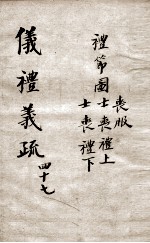 喪服
禮節圖士喪禮上
士喪禮下
儀禮義疏 四十七